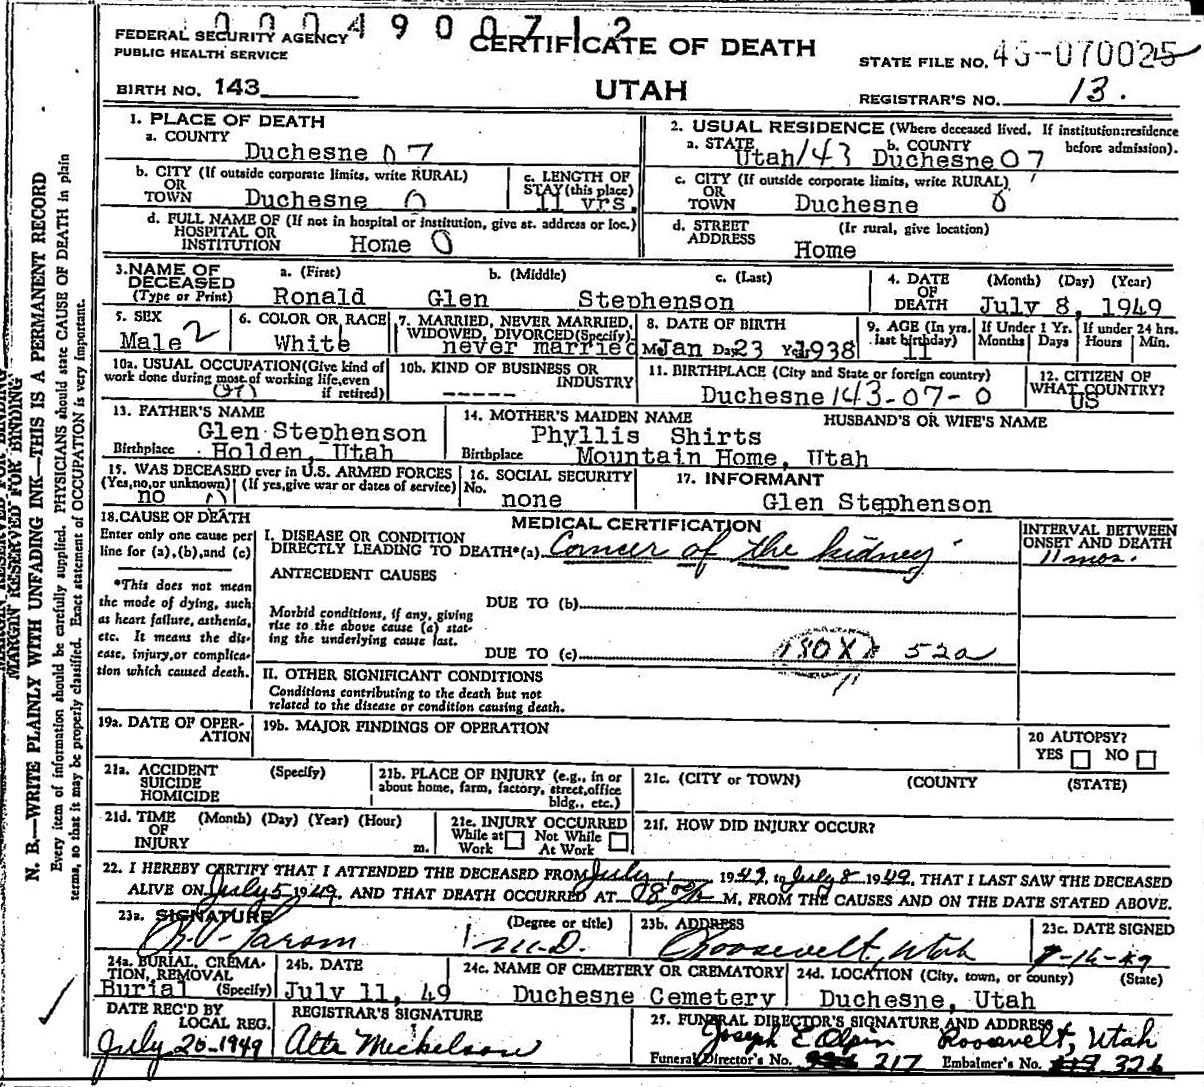 00049007 12
FEDERAL SECURITY AGENCY
PUBLIC HEALTH SERVICE
CERTIFICATE OF DEATH
STATE FILE NO. 49-070025
BIRTH NO. 143
UTAH
REGISTRAR'S NO. 13.
1. PLACE OF DEATH
a. COUNTY
Duchesne 07
2. USUAL RESIDENCE (Where deceased lived. If institution:residence before admission).
a. STATE Utah/143 b. COUNTY Duchesne 07
b. CITY (If outside corporate limits, write RURAL)
OR
TOWN Duchesne 0
c. LENGTH OF
STAY (this place)
11 yrs.
c. CITY (If outside corporate limits, write RURAL)
OR
TOWN Duchesne 0
d. FULL NAME OF (If not in hospital or institution, give st. address or loc.)
HOSPITAL OR
INSTITUTION Home 0
d. STREET (Ir rural, give location)
ADDRESS Home
3. NAME OF DECEASED (Type or Print)
a. (First) b. (Middle) c. (Last)
Ronald Glen Stephenson
4. DATE OF DEATH (Month) (Day) (Year)
July 8, 1949
5. SEX
Male 2
6. COLOR OR RACE
White
7. MARRIED, NEVER MARRIED,
WIDOWED, DIVORCED(Specify)
never married
8. DATE OF BIRTH
Mo Jan Day 23 Year 1938
9. AGE (In yrs. last birthday)
11
If Under 1 Yr.
Months Days
If under 24 hrs.
Hours Min.
10a. USUAL OCCUPATION(Give kind of
work done during most of working life,even
if retired)
10b. KIND OF BUSINESS OR
INDUSTRY
-----
11. BIRTHPLACE (City and State or foreign country)
Duchesne 143-07-0
12. CITIZEN OF
WHAT COUNTRY?
US
13. FATHER'S NAME
Glen Stephenson
Birthplace Holden, Utah
14. MOTHER'S MAIDEN NAME
Phyllis Shirts
Birthplace Mountain Home, Utah
HUSBAND'S OR WIFE'S NAME
15. WAS DECEASED ever in U.S. ARMED FORCES
(Yes,no,or unknown) (If yes,give war or dates of service)
no
16. SOCIAL SECURITY
No.
none
17. INFORMANT
Glen Stephenson
18. CAUSE OF DEATH
Enter only one cause per
line for (a),(b),and (c)
*This does not mean
the mode of dying, such
as heart failure, asthenia,
etc. It means the dis-
ease, injury,or complica-
tion which caused death.
MEDICAL CERTIFICATION
I. DISEASE OR CONDITION
DIRECTLY LEADING TO DEATH*(a) Cancer of the kidney
INTERVAL BETWEEN
ONSET AND DEATH
11 mos.
ANTECEDENT CAUSES
DUE TO (b)
Morbid conditions, if any, giving
rise to the above cause (a) stat-
ing the underlying cause last.
DUE TO (c) 180X 52a
II. OTHER SIGNIFICANT CONDITIONS
Conditions contributing to the death but not
related to the disease or condition causing death.
19a. DATE OF OPER-
ATION
19b. MAJOR FINDINGS OF OPERATION
20 AUTOPSY?
YES NO
21a. ACCIDENT
SUICIDE
HOMICIDE
(Specify)
21b. PLACE OF INJURY (e.g., in or
about home, farm, factory, street,office
bldg., etc.)
21c. (CITY or TOWN) (COUNTY) (STATE)
21d. TIME OF INJURY (Month) (Day) (Year) (Hour)
m.
21e. INJURY OCCURRED
While at Work Not While At Work
21f. HOW DID INJURY OCCUR?
22. I HEREBY CERTIFY THAT I ATTENDED THE DECEASED FROM July 1 1949, to July 8 1949, THAT I LAST SAW THE DECEASED
ALIVE ON July 5 1949, AND THAT DEATH OCCURRED AT M, FROM THE CAUSES AND ON THE DATE STATED ABOVE.
23a. SIGNATURE
R. V. Larson
(Degree or title)
M.D.
23b. ADDRESS
Roosevelt, Utah
23c. DATE SIGNED
7-16-49
24a. BURIAL, CREMA-
TION, REMOVAL
Burial (Specify)
24b. DATE
July 11, 49
24c. NAME OF CEMETERY OR CREMATORY
Duchesne Cemetery
24d. LOCATION (City, town, or county) (State)
Duchesne, Utah
DATE REC'D BY
LOCAL REG.
July 20-1949
REGISTRAR'S SIGNATURE
Alta Mickelson
25. FUNERAL DIRECTOR'S SIGNATURE AND ADDRESS
Joseph E Olpin Roosevelt, Utah
Funeral Director's No. 217 Embalmer's No. 326
MARGIN RESERVED FOR BINDING
N. B.—WRITE PLAINLY WITH UNFADING INK—THIS IS A PERMANENT RECORD
Every item of information should be carefully supplied. PHYSICIANS should state CAUSE OF DEATH in plain
terms, so that it may be properly classified. Exact statement of OCCUPATION is very important.